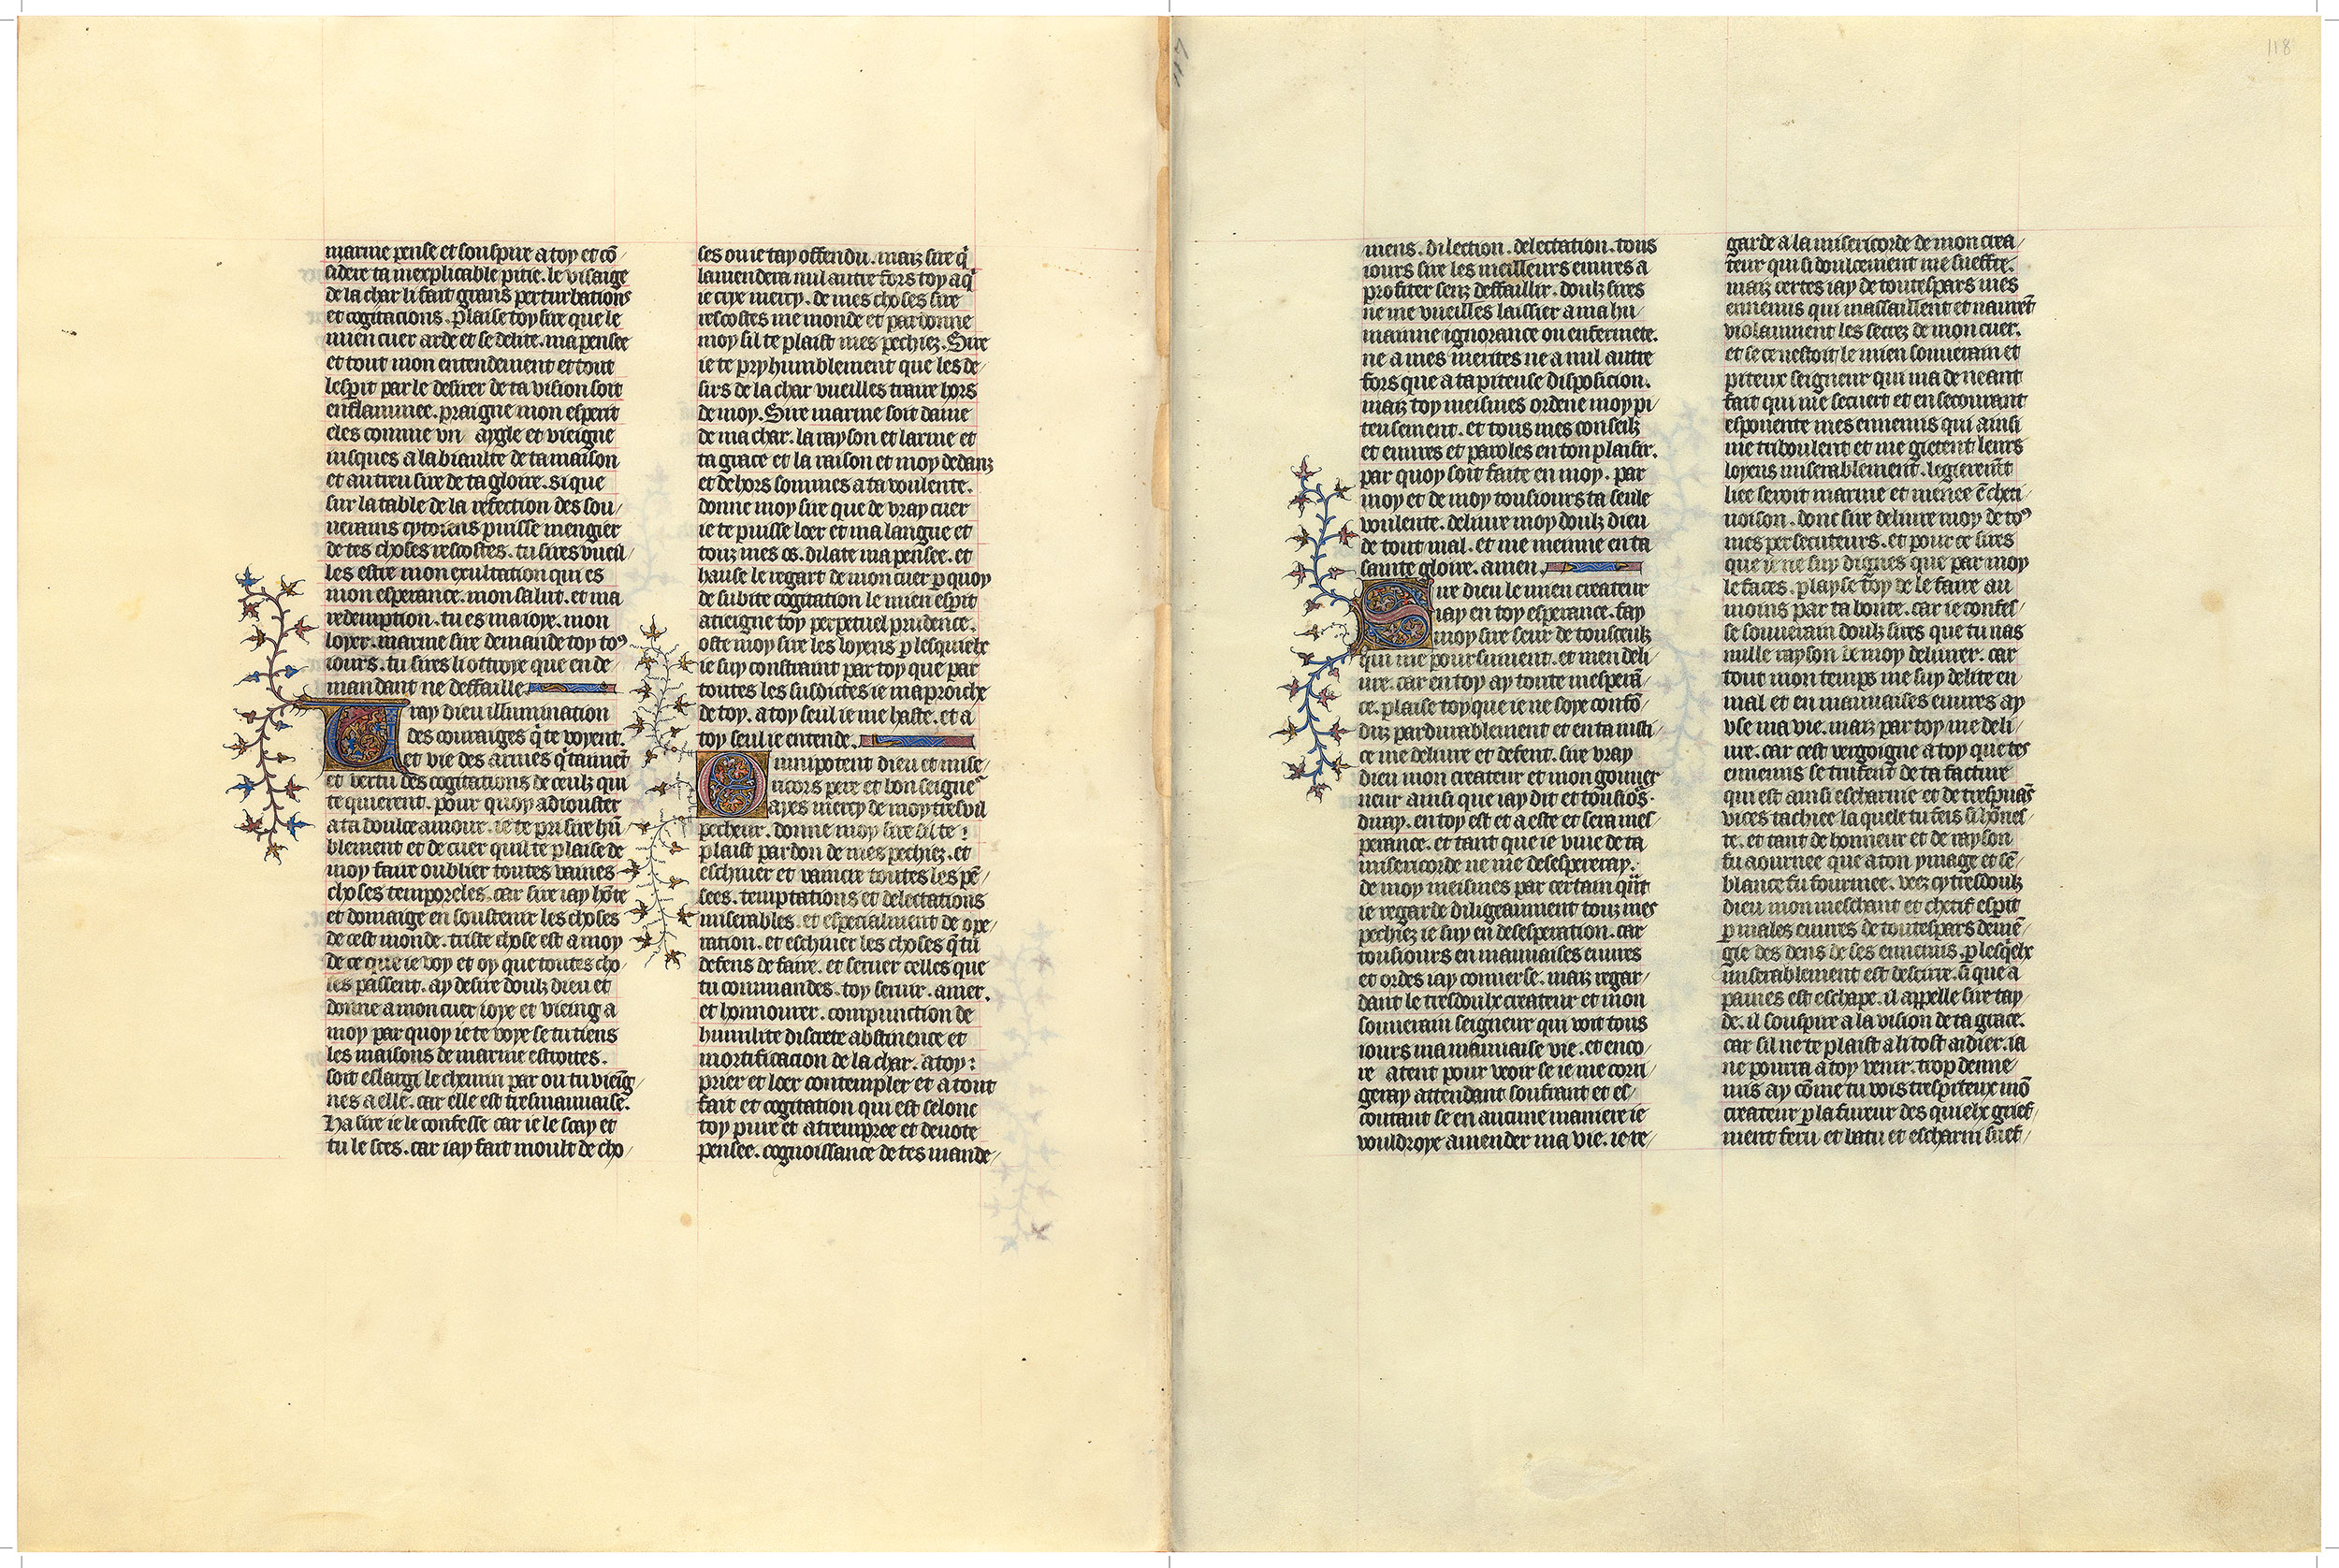 marme pense et souspire a toy et cō
sidere ta inexplicable pitie. le visaige
de la char li fait grans perturbations
et cogitacions. plaise toy sire que le
mien cuer arde et se delite. ma pensee
et tout mon entendement et tout
lesprit par le desirer de ta vision soit
enflammee. praigne mon esperit
eles comme vn aygle et vieigne
iusques a la biaulte de ta maison
et au treu sire de ta gloire. si que
sur la table de la refection des sou/
uerains cytoiens puisse mengier
de tes choses rescostes. tu sires vueil/
les estre mon exultation qui es
mon esperance. mon salut. et ma
redemption. tu es ma ioye. mon
loyer. marme sire demande toy toꝰ
iours. tu sires li ottroye que en de
mandant ne deffaille
Uray dieu illumination
des couraiges q̄ te voyent.
et vie des armes q̄ taiment
et vertu des cogitations de ceulz qui
te quierent. pour quoy adiouster
a ta doulce amour. ie te pri sire hū
blement et de cuer quil te plaise de
moy faire oublier toutes vaines
choses temporeles. car sire iay hōte
et domaige en soustenir les choses
de cest monde. triste chose est a moy
de ce que ie voy et oy que toutes cho
ses passent. ay desire doulz dieu et
donne a mon cuer ioye et vieing a
moy par quoy ie te voye se tu tiens
les maisons de marme estroites.
soit eslargi le chemin par ou tu vieig/
nes a elle. car elle est tresmauuaise.
Ha sire ie le confesse car ie le scay et
tu le sces. car iay fait moult de cho/
ses ou ie tay offendu. maiz sire q̄
lamendera nul autre fors toy a q̄
ie crye mercy. de mes choses sire
rescostes me monde et pardonne
moy sil te plaist mes pechiez. Sire
ie te pry humblement que les de/
sirs de la char vueilles traire hors
de moy. Sire marme soit dame
de ma char. la rayson et larme et
ta grace et la raison et moy dedanz
et dehors sommes a ta voulente.
donne moy sire que de vray cuer
ie te puisse loer et ma langue et
touz mes os. dilate ma pensee. et
hause le regart de mon cuer ꝑ quoy
de subite cogitation le mien esprit
atieigne toy perpetuel prudence.
oste moy sire les loyens ꝑ lesquielx
ie suy constraint par toy que par
toutes les susdictes ie maproiche
de toy. a toy seul ie me haste. et a
toy seul ie entende.
Omnipotent dieu et mise/
ricors pere et bon seigneᷣ
ayes mercy de moy tresvil
pecheur. donne moy sire sil te :
plaist pardon de mes pechiez. et
eschiuer et vaincre toutes les pē/
sees. temptations et delectations
miserables. et especialment de ope/
ration. et eschiuer les choses q̄ tu
defens de faire. et seruer celles que
tu commandes. toy seruir. amer.
et honnourer. compunction de
humilite discrete abstinence et
mortificacion de la char. a toy :
prier et loer contempler et a tout
fait et cogitation qui est selonc
toy pure et atrempree et deuote
pensee. cognoissance de tes mande/
118
mens. dilection. delectation. tous
iours sire les meilleurs euures a
profiter senz deffaillir. doulz sires
ne me vueilles laissier a ma hu/
maine ignorance ou enfermete.
ne a mes merites ne a nul autre
fors que a ta piteuse disposicion.
maiz toy meismes ordene moy pi/
teusement. et tous mes conseilz
et euures et paroles en ton plaisir.
par quoy soit faite en moy. par
moy et de moy tousiours ta seule
voulente. deliure moy doulz dieu
de tout mal. et me memine en ta
sainte gloire. amen.
Sire dieu le mien createur
iay en toy esperance. fay
moy sire seur de tousceulz
qui me poursuiuent. et men deli/
ure. car en toy ay toute mesperā/
ce. plaise toy que ie ne soye confō/
duz pardurablement et en ta iusti/
ce me deliure et defent. sire vray
dieu mon createur et mon gouuer
neur ainsi que iay dit et tousiōs.
diray. en toy est et a este et sera mes/
perance. et tant que ie viue de ta
misericorde ne me desespereray.
de moy meismes par certain qūt
ie regarde diligeaument touz mes
pechiez ie suy en desesperation. car
tousiours en mauuaises euures
et ordes iay conuerse. maiz regar/
dant le tresdoulx createur et mon
souuerain seigneur qui voit tous
iours ma mauuaise vie. et enco/
re atent pour veoir se ie me corri/
geray attendant soufrant et es/
coutant se en aucune maniere ie
vouldroye amender ma vie. ie re/
garde a la misericorde de mon crea/
teur qui si doulcement me sueffre.
maiz certes iay de toutespars mes
ennemis qui massaillent et naurēt
violaument les secrez de mon cuer.
et se ce nestoit le mien souuerain et
piteux seigneur qui ma de neant
fait qui me sequeurt et en secourant
espouente mes ennemis qui ainsi
me triboulent et me gietent leurs
loyens miserablement. legierem̄t
liee seroit marme et menee ē cheti/
uoison. donc sire deliure moy de toꝰ
mes persecuteurs. et pour ce sires
que ie ne suy dignes que par moy
le faces. playse toy de le faire au
moins par ta bonte. car ie confes/
se souuerain doulz sires que tu nas
nulle rayson de moy deliurer. car
tout mon temps me suy delite en
mal et en mauuaises euures ay
vse ma vie. maiz par toy me deli/
ure. car cest vergoigne a toy que tes
ennemis se trufent de ta facture
qui est ainsi escharnie et de trespuās
vices tachiee la quele tu feis si hōnes/
te. et tant de honneur et de rayson
fu aournee que a ton ymage et sē/
blance fu fourmee. veez cy tresdoulz
dieu mon meschant et chetif esprit
ꝑ males euures de toutespars demē/
gie des dens de ses ennemis. ꝑ lesq̄elx
miserablement est descire. si que a
paines est eschape. il appelle sire tay/
de. il souspire a la vision de ta grace.
car sil ne te plaist a li tost aidier. ia
ne pourra a toy venir. trop denne
mis ay cōme tu vois trespiteux mō
createur ꝑ la fureur des quielx grief/
ment feru et batu et escharni suef/